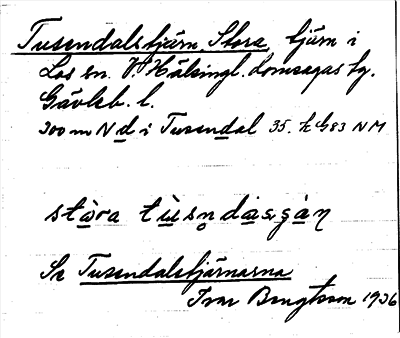 Tusendalstjärn, Stora, tjärn i
Los sn. V Hälsingl. domsagas tg.
Gävleb. l.
300 m N d i Tusendal 35. k G83 NM
stòra tùsn̥dasɡàn
Se Tusendalstjärnarna
Ivar Bengtsson 1936